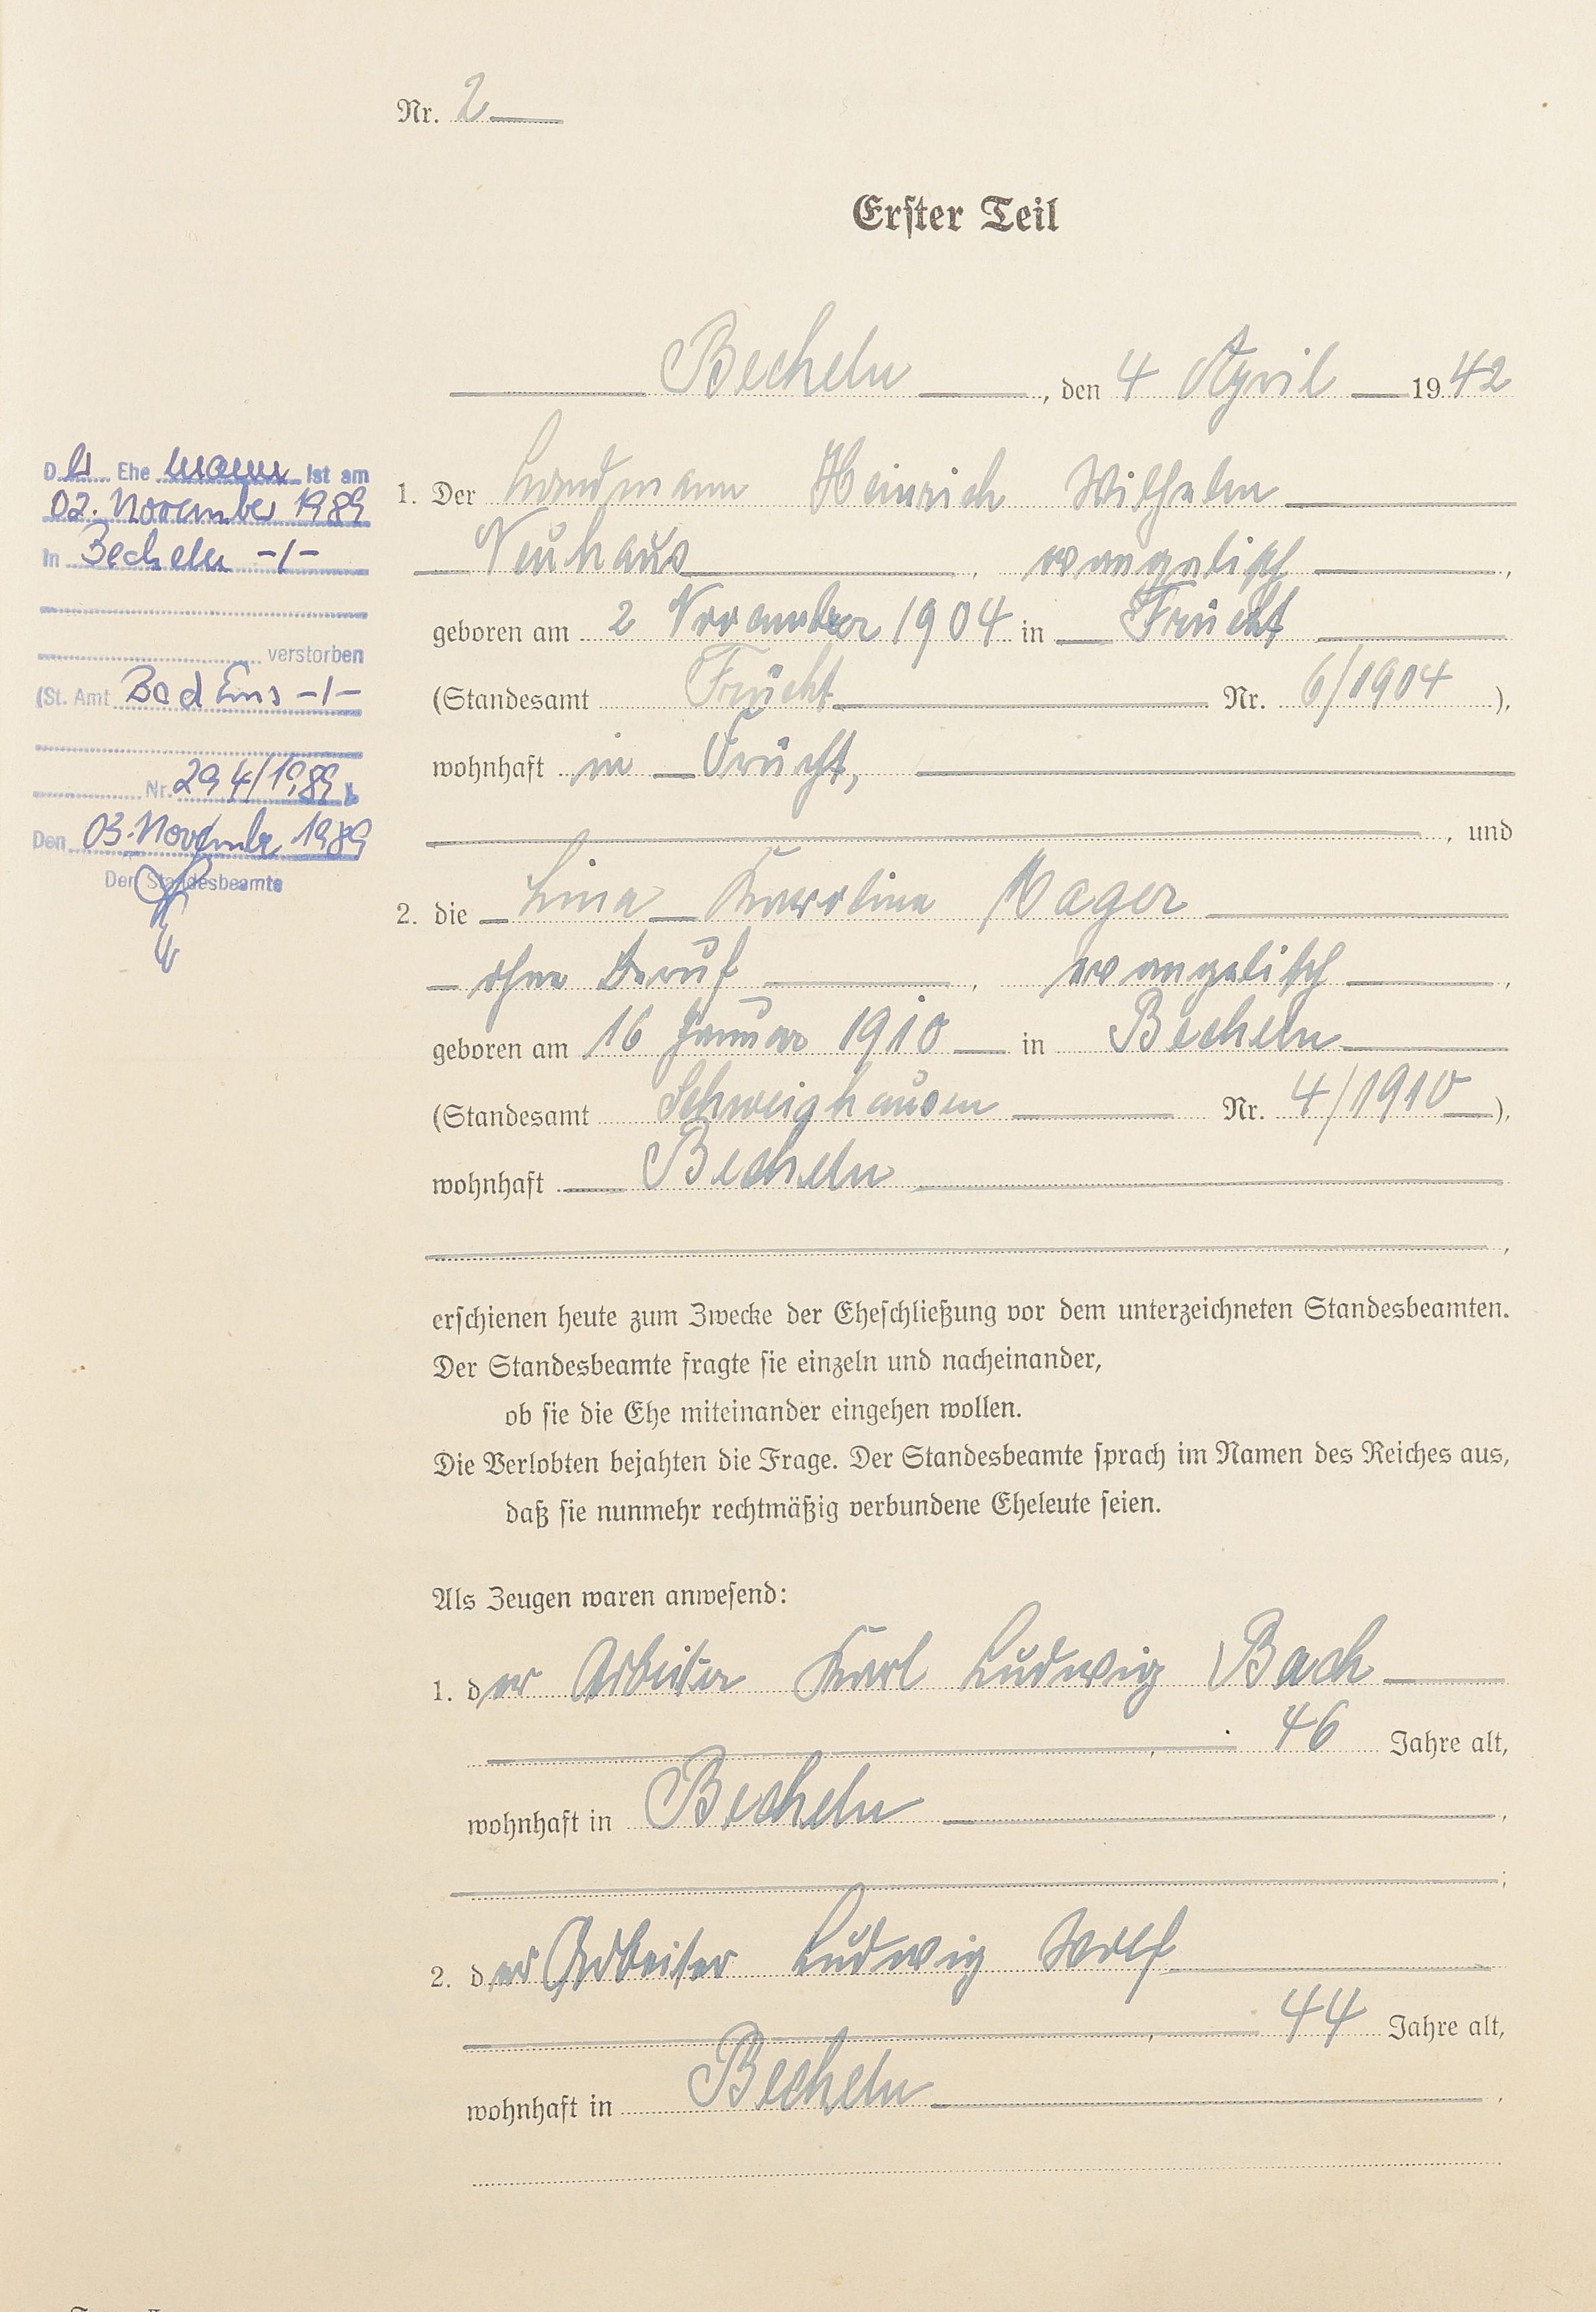 Nr. 2
Erster Teil
Becheln, den 4 April 1942
1. Der Landmann Heinrich Wilhelm
Neuhaus, evangelisch,
geboren am 2 November 1904 in Frücht
(Standesamt Frücht Nr. 6/1904),
wohnhaft in Frücht,
, und
2. die Lina Karoline
ohne Beruf, evangelisch,
geboren am 16 Januar 1910 in Becheln
(Standesamt Schweighausen Nr. 4/1910),
wohnhaft Becheln
,
erschienen heute zum Zwecke der Eheschließung vor dem unterzeichneten Standesbeamten.
Der Standesbeamte fragte sie einzeln und nacheinander,
ob sie die Ehe miteinander eingehen wollen.
Die Verlobten bejahten die Frage. Der Standesbeamte sprach im Namen des Reiches aus,
daß sie nunmehr rechtmäßig verbundene Eheleute seien.
Als Zeugen waren anwesend:
1. der Arbeiter Karl Ludwig Bach
, 46 Jahre alt,
wohnhaft in Becheln,
;
2. der Arbeiter Ludwig Wolf
, 44 Jahre alt,
wohnhaft in Becheln.
Der Ehemann ist am
02. November 1989
in Becheln -/-
verstorben
(St. Amt Bad Ems -/-
Nr. 294/1989).
Den 03. November 1989
Der Standesbeamte